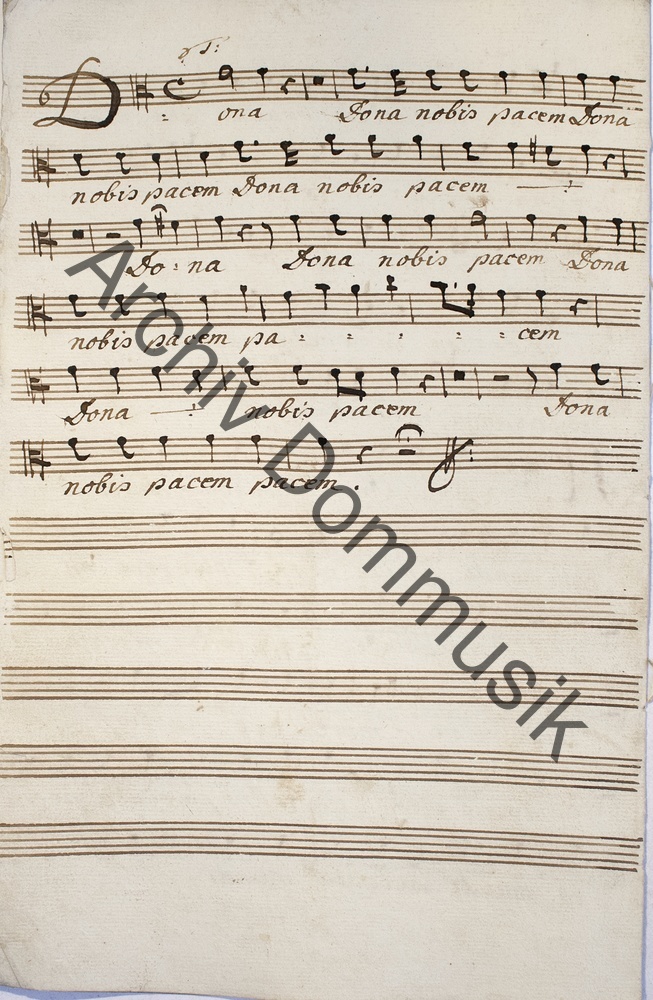 T:
Dona Dona nobis pacem Dona
nobis pacem Dona nobis pacem
Do : na Dona nobis pacem Dona
nobis pacem pa : : : : : cem
Dona nobis pacem Dona
nobis pacem pacem .
Archiv Dommusik